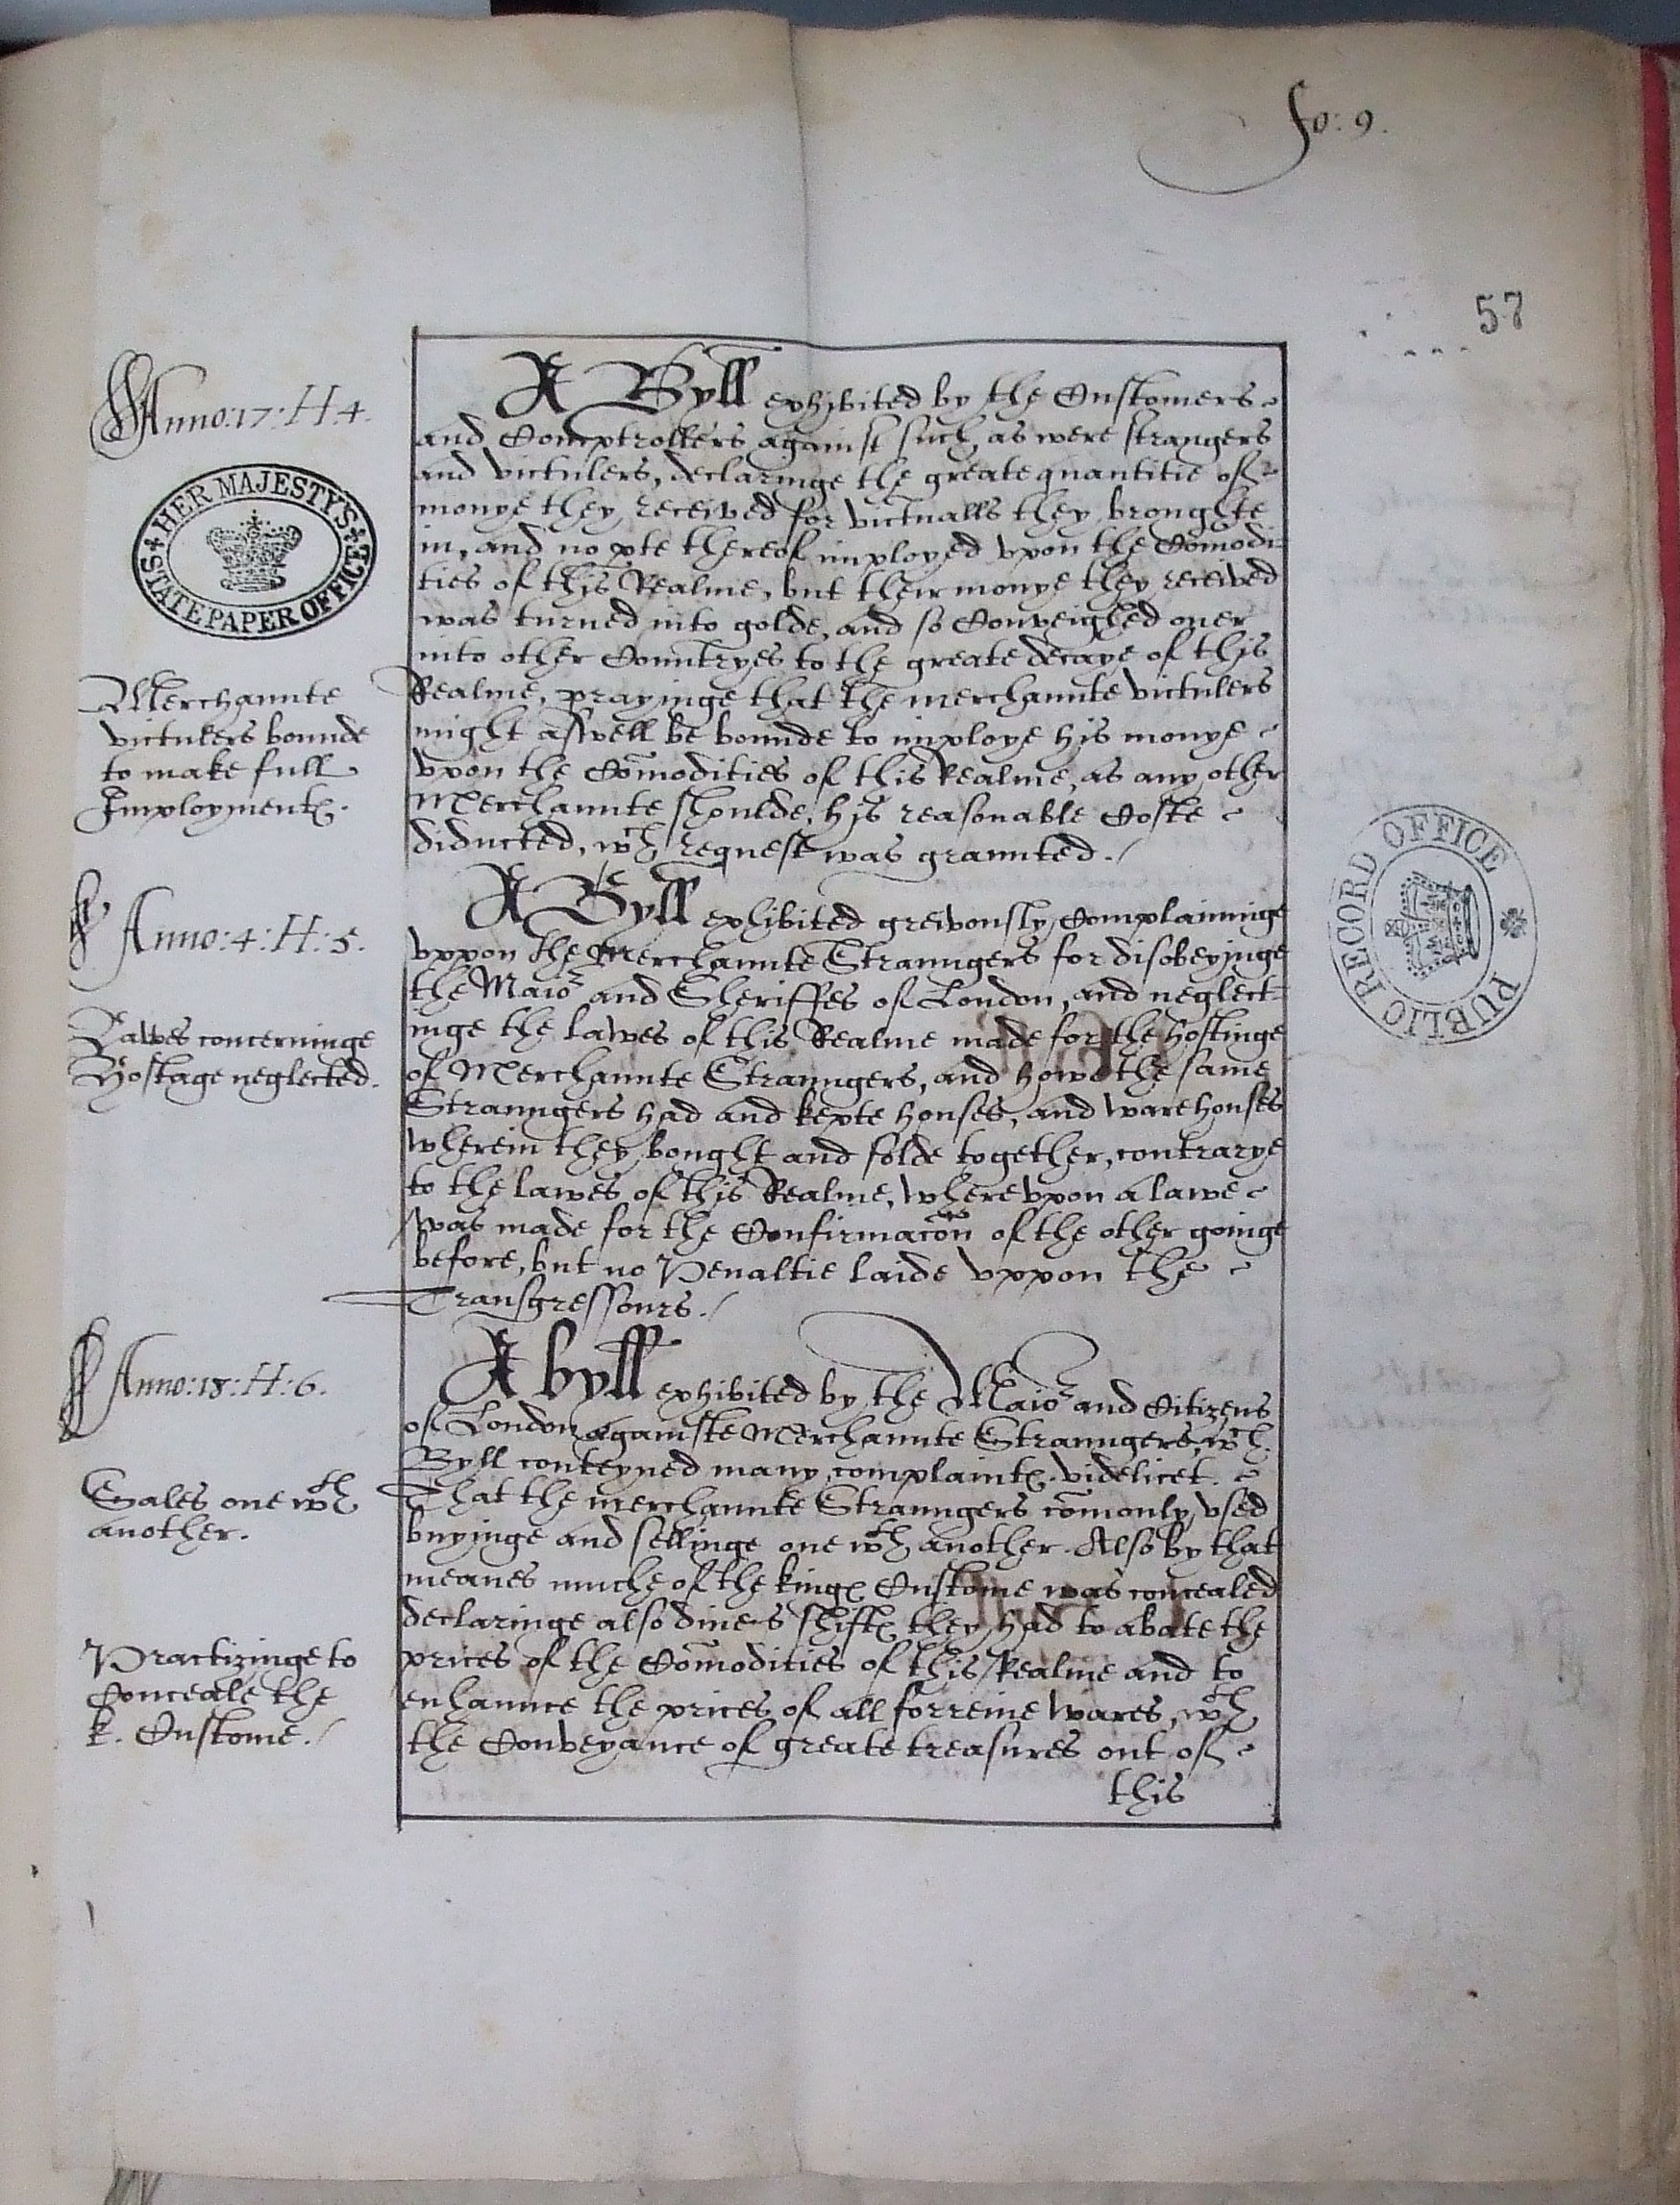 fo: 9.
57
Anno: 17: H: 4.
A Byll exhibited by the Customers
and Comptrollers against such as were strangers
and victulers, declaringe the greate quantitie of
monye they received for victualls they broughte
in, and no pte thereof imployed vpon the Comodi-
ties of this Realme, but their monye they received
was turned into golde, and so Conveighed ouer
into other Countryes to the greate decaye of this
Realme, prayinge that the merchaunte victulers
might aswell be bounde to imploye his monye
vpon the Comodities of this Realme, as any other
Merchaunte shoulde, his reasonable Coste
diducted, wch request was graunted./
HER MAJESTY'S
STATE PAPER OFFICE
Merchaunte
victulers bounde
to make full
Imployment.
PUBLIC RECORD OFFICE
Anno: 4: H: 5.
A Byll exhibited greivously Complaininge
vppon the Merchaunte Straungers for disobeyinge
the Maior and Sheriffes of London, and neglect-
inge the lawes of this Realme made for the hostinge
of Merchaunte Straungers, and howe the same
Straungers had and kepte houses, and warehouses
wherein they bought and solde together, contrarye
to the lawes of this Realme, wherevpon a lawe
was made for the Confirmacon of the other goinge
before, but no Penaltie laide vppon the
Transgressours./
Lawes concerninge
Hostage neglected.
Anno: 18: H: 6.
A byll exhibited by the Maior and Citizens
of London againste Merchaunte Straungers, wch
Byll conteyned many complaintes. videlicet.
That the merchaunte Straungers comonly vsed
buyinge and sellinge one wth another. Also by that
meanes muche of the kinges Custome was concealed
declaringe also diuers shiftes they had to abate the
prices of the Comodities of this Realme and to
enhaunce the prices of all forreine wares, wth
the Conveyance of greate treasures out of
this
Sales one wth
another.
Practizinge to
Conceale the
k. Custome./